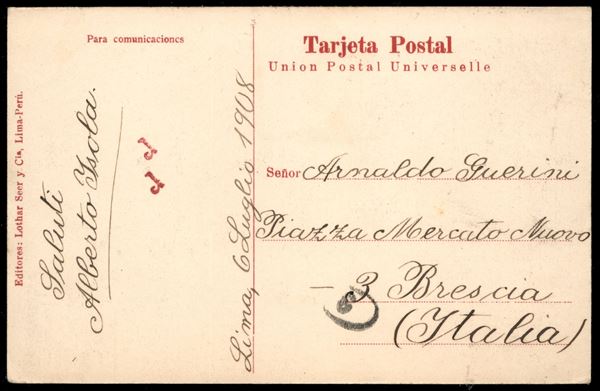 Para comunicaciones
Tarjeta Postal
Union Postal Universelle
Editores: Lothar Seer y Cía, Lima-Perú.
Saluti
Alberto Isola.
Lima, 6 Luglio 1908
Señor Arnaldo Guerini
Piazza Mercato Nuovo
3 Brescia
(Italia)